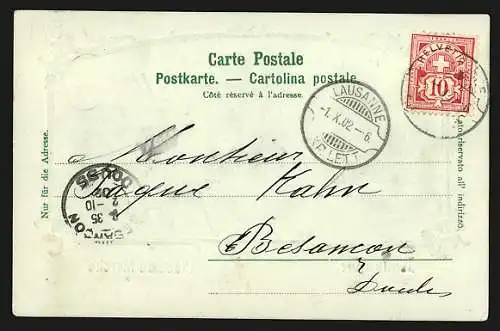 Carte Postale
Postkarte. — Cartolina postale
Côté réservé à l'adresse.
HELVETIA
10
LAUSANNE
-1.X.02-6
EXP. LETT.
Nur für die Adresse.
Lato riservato all' indirizzo.
Monsieur
Jaque Kahn
Besançon
Doubs
DOUBS
02
2-10
4 35
BESANÇON